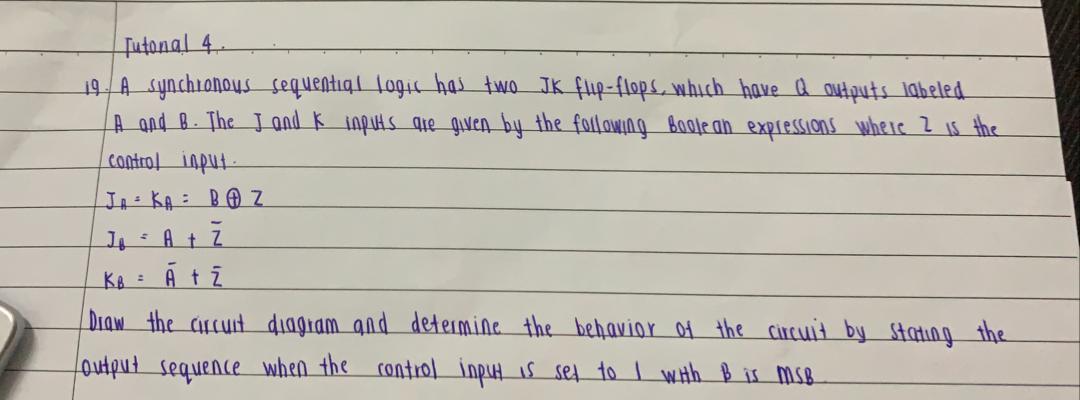 Tutorial 4.
19. A synchronous sequential logic has two JK flip-flops, which have Q outputs labeled
A and B. The J and K inputs are given by the following Boolean expressions where Z is the
control input.
J_A = K_A = B ⊕ Z
J_B = A + Z̄
K_B = Ā + Z̄
Draw the circuit diagram and determine the behavior of the circuit by stating the
output sequence when the control input is set to 1 with B is MSB